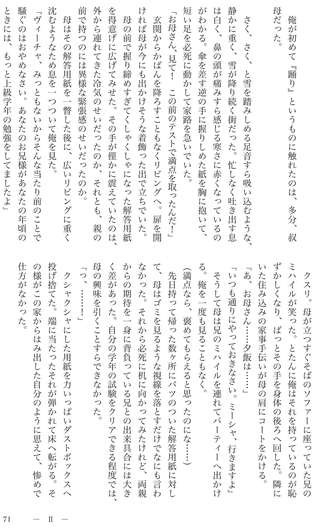 俺が初めて『踊り』というものに触れたのは、多分、叔
母だった。
さく、さく、と雪を踏みしめる足音すら吸い込むような、
静かに重く、雪が降り続く街だった。忙しなく吐き出す息
は白く、鼻の頭が痛みすら感じる寒さに赤くなっているの
がわかる。傘を差す逆の手に握りしめた紙を胸に抱いて、
短い足を必死に動かして家路を急いでいた。
「お母さん、見て！ この前のテストで満点を取ったんだ！」
玄関からかばんを降ろすこともなくリビングへ。扉を開
ければ母が今にも出かけそうな着飾った出で立ちでいた。
母の前で握り締めすぎてくしゃくしゃになった解答用紙
を得意げに広げてみせた。その手が僅かに震えていたのは、
外から連れてきた冷気のせいだったのか、それとも、親の
前で持つのには異様な緊張感のせいだったのか。
母はその解答用紙を一瞥した後に、広いリビングに重く
沈むようなため息を一つついて俺を見た。
「ヴィーチャ、みっともないからそんな当たり前のことで
騒ぐのはおやめなさい。あなたのお兄様があなたの年頃の
ときには、もっと上級学年の勉強をしてましたよ」
クスリ。母が立つすぐそばのソファーに座っていた兄の
ミハイルが笑った。とたんに俺はそれを持っているのが恥
ずかしくなり、ぱっとその手を身体の後ろへ回した。隣に
いた住み込みの家事手伝いが母の肩にコートをかける。
「あ、お母さん……夕飯は……」
「いつも通りにやっておきなさい。ミーシャ、行きますよ」
そうして母は兄のミハイルを連れてパーティーへ出かけ
る。俺を一度も見ることもなく。
（満点なら、褒めてもらえると思ったのにな……）
先日持って帰った数ヶ所にバツのついた解答用紙に対し
て、母はゴミを見るような視線を落とすだけでなにも言わ
なかった。それから必死に机に向かってみたけれど、両親
からの期待を一身に背負っている兄との出来具合には大き
く差があった。自分の学年の試験をクリアできる程度では、
母の興味を引くことすらできなかった。
「っ、……！」
クシャクシャにした用紙を力いっぱいダストボックスへ
投げ捨てた。端に当たったそれが弾かれて床へ転がる。そ
れがこの家からはみ出した自分のように思えて、惨めで
仕方がなかった。
― II ―
71